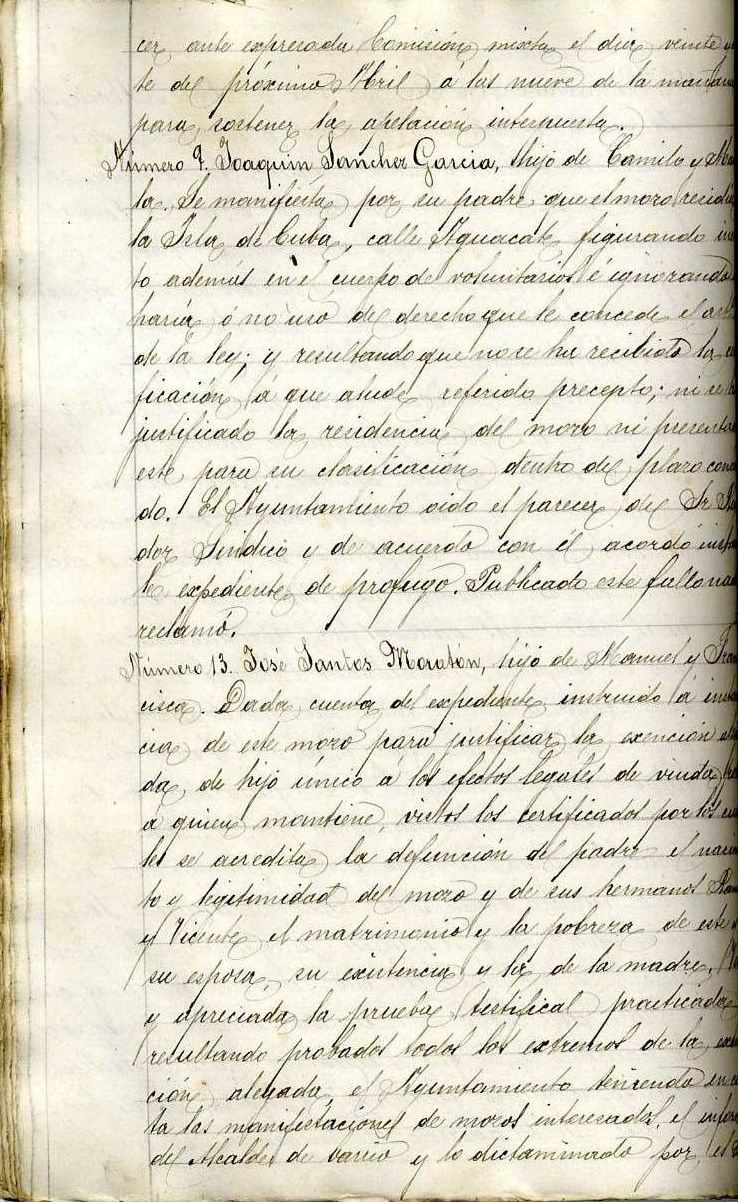 cer ante expresada Comisión mixta el dia veinte y
te del próximo Abril á las nueve de la mañana
para sostener la apelación interpuesta.
Número 9. Joaquin Sanchez Garcia, hijo de Camilo y Ma
la. Se manifiesta por su padre que el mozo reside
la Isla de Cuba, calle Aguacate figurando in
to ademas en el cuerpo de voluntarios é ignorando
haria ó no uso del derecho que le concede el art
de la ley; y resultando que no se ha recibido la
ficación á que alude referido precepto; ni se h
justificado la residencia del mozo ni presenta
este para su clasificación dentro del plazo conc
do. El Ayuntamiento oido el parecer del Sr
dor Sindico y de acuerdo con él, acordó inst
le expediente de profugo. Publicado este fallo na
reclamó.
Número 13. José Santos Moratón, hijo de Manuel y Fran
cisca. Dada cuenta del expediente instruido á instan
cia de este mozo para justificar la exención ale
da, de hijo único á los efectos legales de viuda
a quien mantiene, vistos los certificados por los cua
les se acredita la defunción del padre el naci
to y legitimidad del mozo y de sus hermanos
y Vicente el matrimonio y la pobreza de este
su esposa, su existencia y la de la madre.
y apreciada la prueba testifical practicada
resultando probados todos los extremos de la exen
ción alegada, el Ayuntamiento teniendo en c
ta las manifestaciones de mozos interecados, el infor
del Alcalde de varrio y lo dictaminado por el